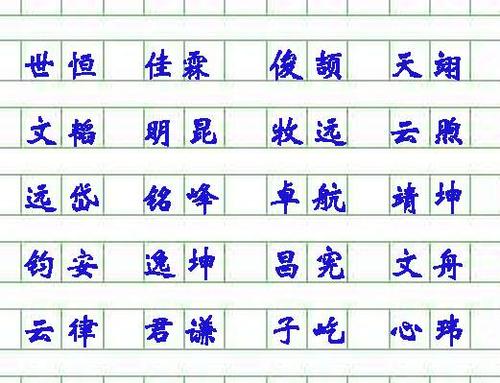 世恒 佳霖 俊颉 天翊
文韬 明昆 牧远 云煦
远岱 铭峰 卓航 靖坤
钧安 逸坤 昌宪 文舟
云律 君谦 子屹 心玮